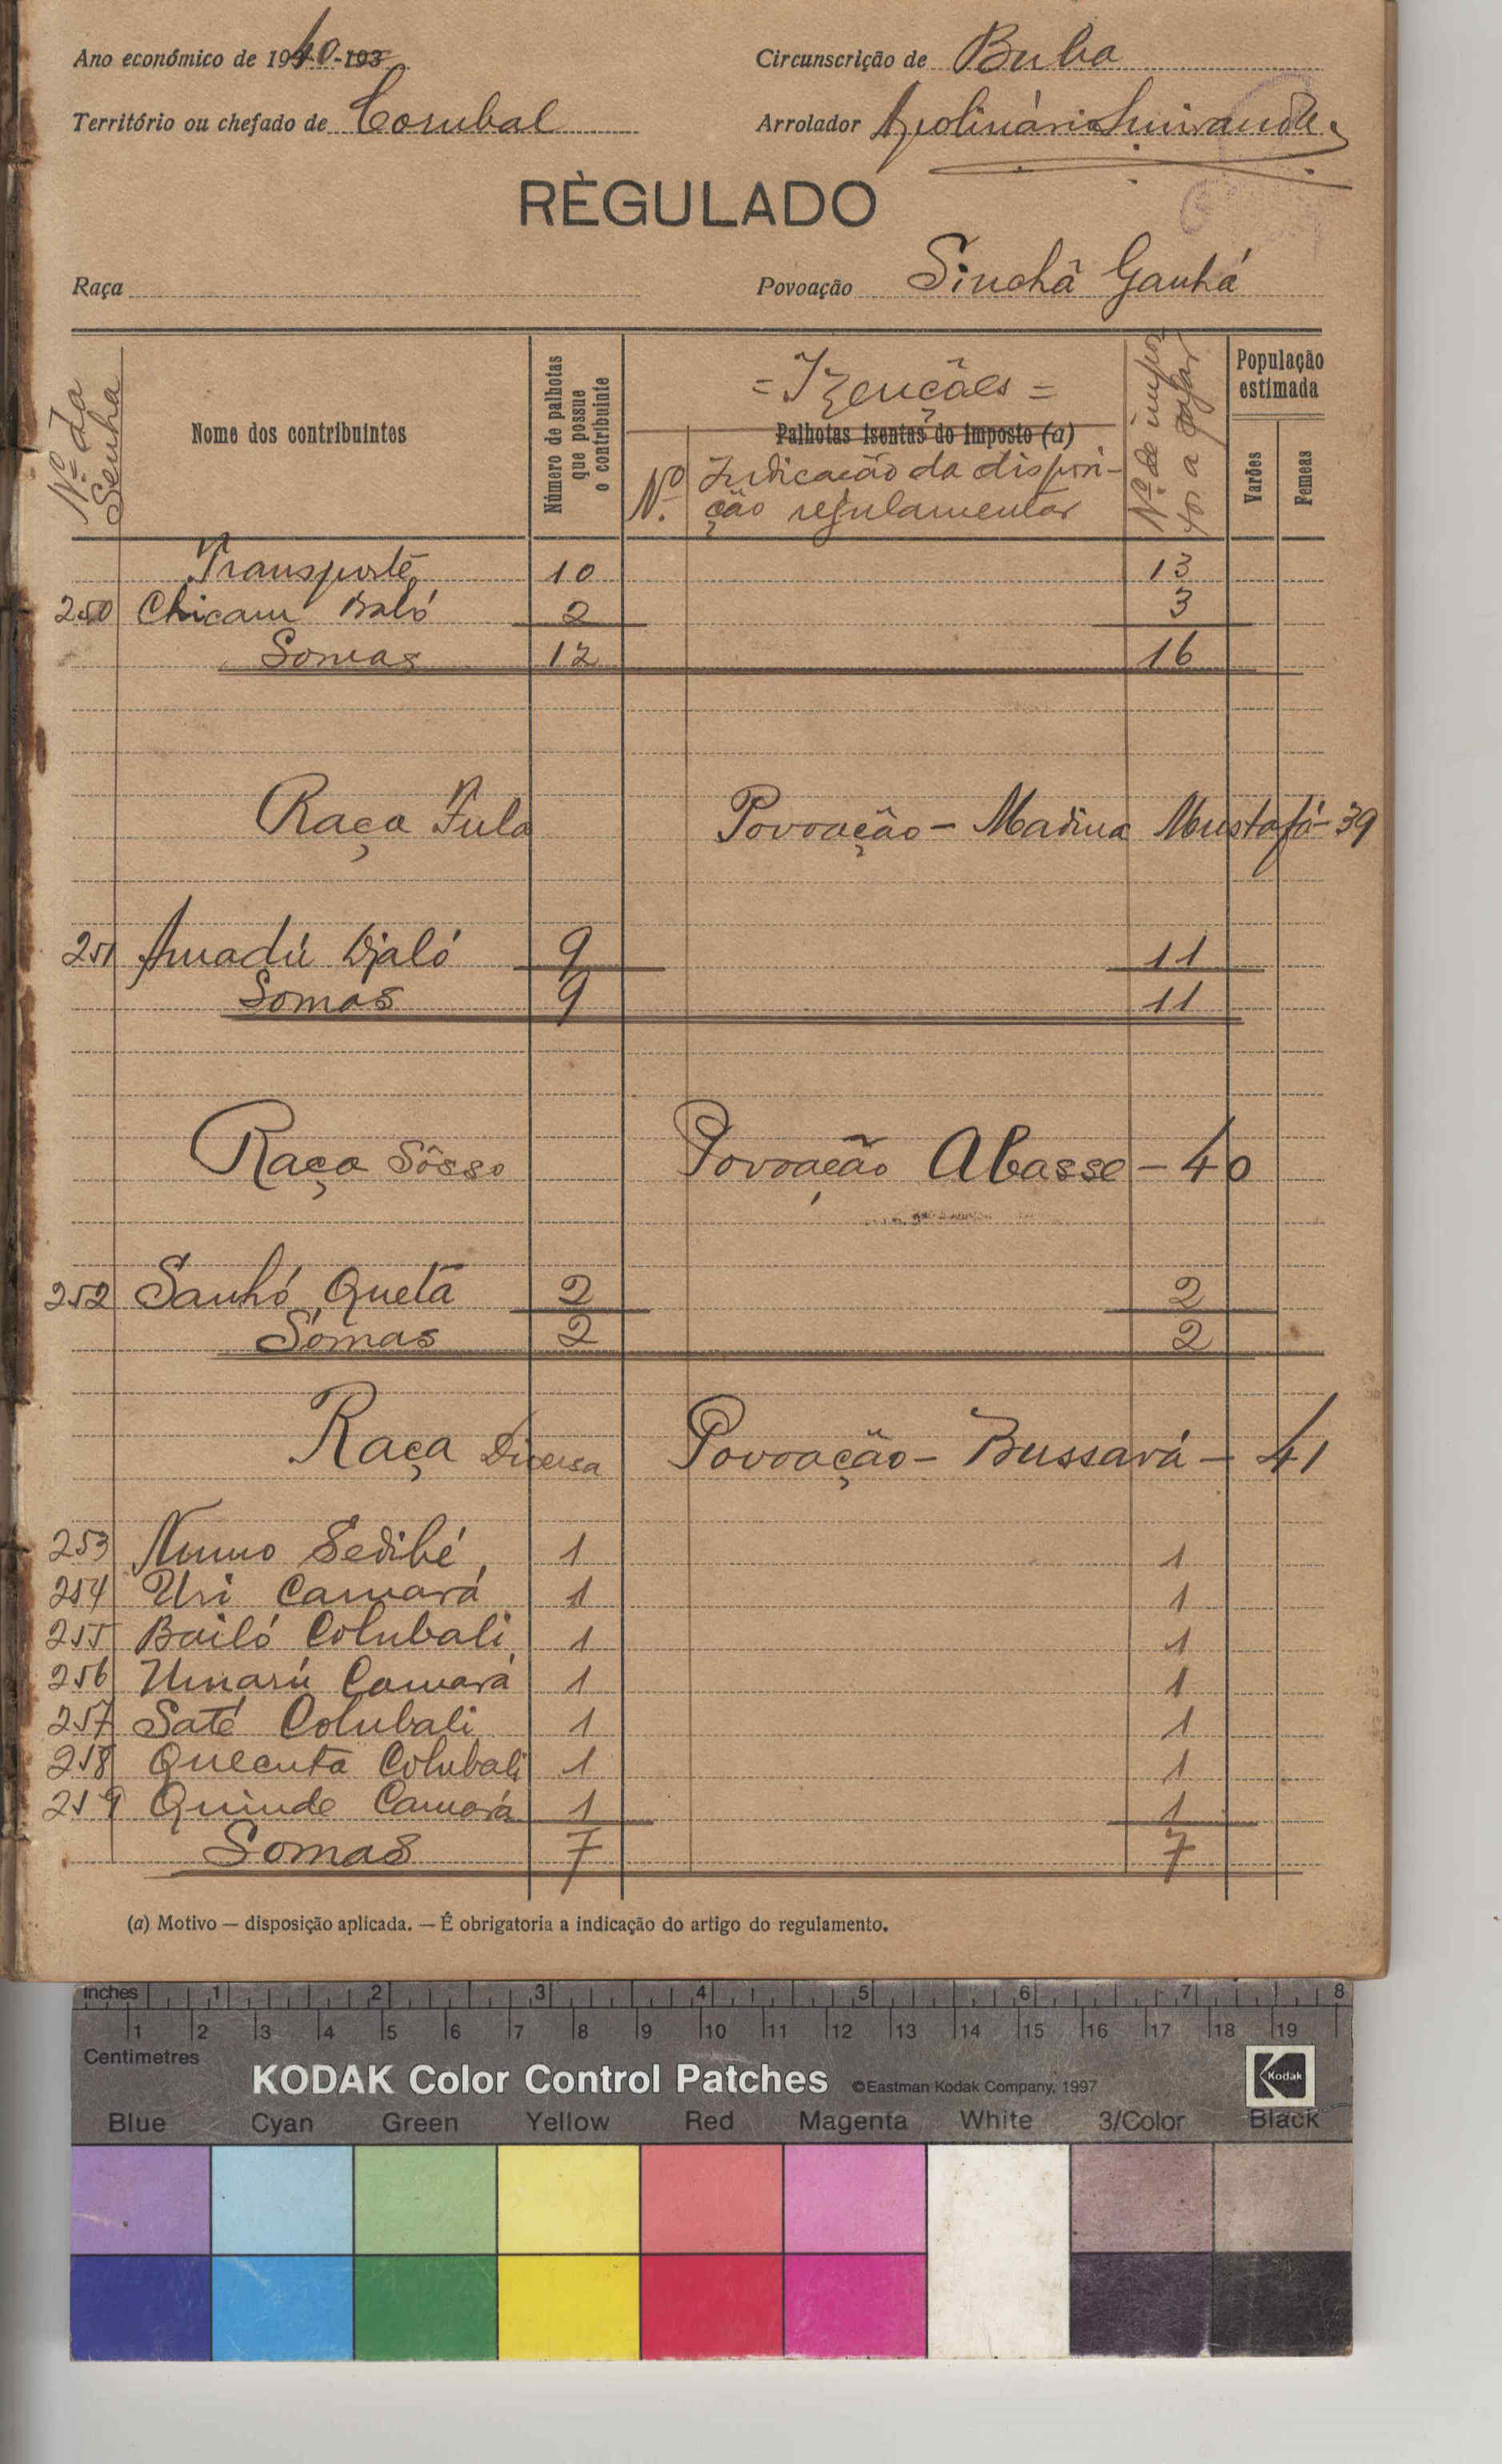 Ano económico de 1940-193
Circunscrição de Buba
Território ou chefado de Corubal
Arrolador Apolinário Miranda
RÈGULADO
Raça
Povoação Sinchã Ganhá
Nº da Senha
Nome dos contribuintes
Número de palhotas que possue o contribuinte
= Izenções =
Palhotas isentas do imposto (a)
Nº. Indicação da disposi-
ção regulamentar
Nº de impos
tos a pagar
População estimada
Varões
Femeas
Transporte 10 13
250 Chicam Baló 2 3
Somas 12 16
Raça Fula Povoação - Madina Mustafá - 39
251 Amadú Djaló 9 11
Somas 9 11
Raça Sôsso Povoação Abasse - 40
252 Sanhó Quetá 2 2
Somas 2 2
Raça Diversa Povoação - Bussará - 41
253 Numo Sedibé 1 1
254 Uri Camará 1 1
255 Bailó Colubali 1 1
256 Umarú Camará 1 1
257 Saté Colubali 1 1
258 Quecuta Colubali 1 1
259 Quinde Camará 1 1
Somas 7 7
(a) Motivo — disposição aplicada. — É obrigatoria a indicação do artigo do regulamento.
inches 1 2 3 4 5 6 7 8
1 2 3 4 5 6 7 8 9 10 11 12 13 14 15 16 17 18 19
Centimetres
KODAK Color Control Patches ©Eastman Kodak Company, 1997 Kodak
Blue Cyan Green Yellow Red Magenta White 3/Color Black